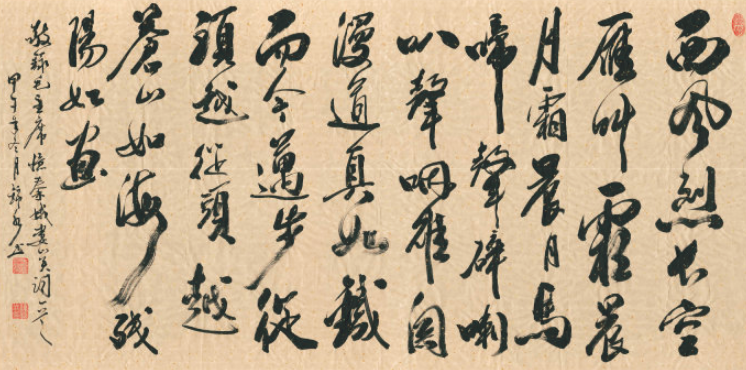 西风烈长空
雁叫霜晨
月霜晨月馬
啼聲碎喇
叭聲咽雄関
漫道真如鐵
而今邁步從
頭越從頭越
蒼山如海残
陽如血
敬録毛主席憶秦娥婁山关詞一首
甲午年冬月